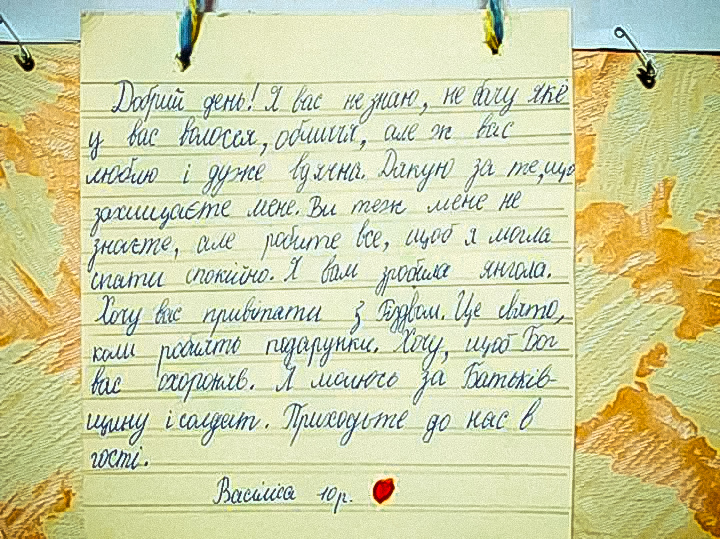 Добрий день! Я вас не знаю, не бачу яке
у вас волосся, обличчя, але ж вас
люблю і дуже вдячна. Дякую за те, що
захищаєте мене. Ви теж мене не
знаєте, але робите все, щоб я могла
спати спокійно. Я вам зробила янгола.
Хочу вас привітати з Різдвом. Це свято,
коли роблять подарунки. Хочу, щоб Бог
вас охороняв. Я молюсь за Батьків-
щину і солдат. Приходьте до нас в
гості.
Василіса 10 р.